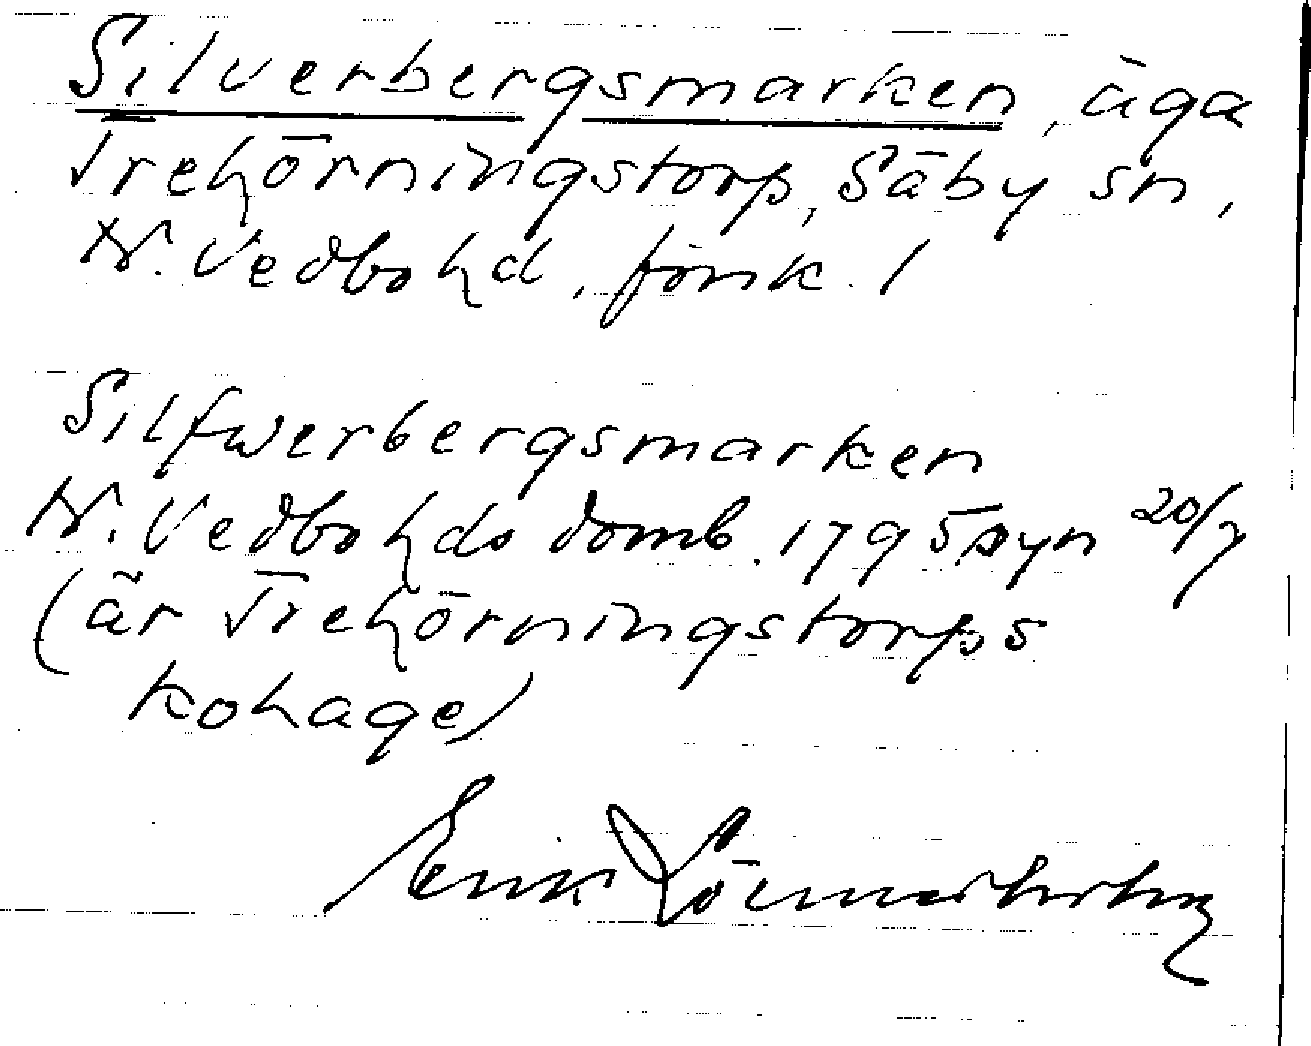 Silverbergsmarken, äga
Trehörningstorp, Säby sn,
N. Vedbo hd, fönk. 1
Silfwerbergsmarken
N. Vedbo hds domb. 1795 syn 20/7
(är Trehörningstorps
kohage)
Erik